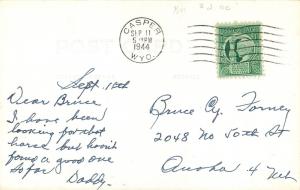 CASPER
SEP 11
5 PM
1944
WYO.
POST CARD
Sept. 10th
Dear Bruce
I have been
looking for that
horse but havn't
found a good one
so far
Daddy
Bruce Cy.
2048 No 50th St
Omaha 4 Neb